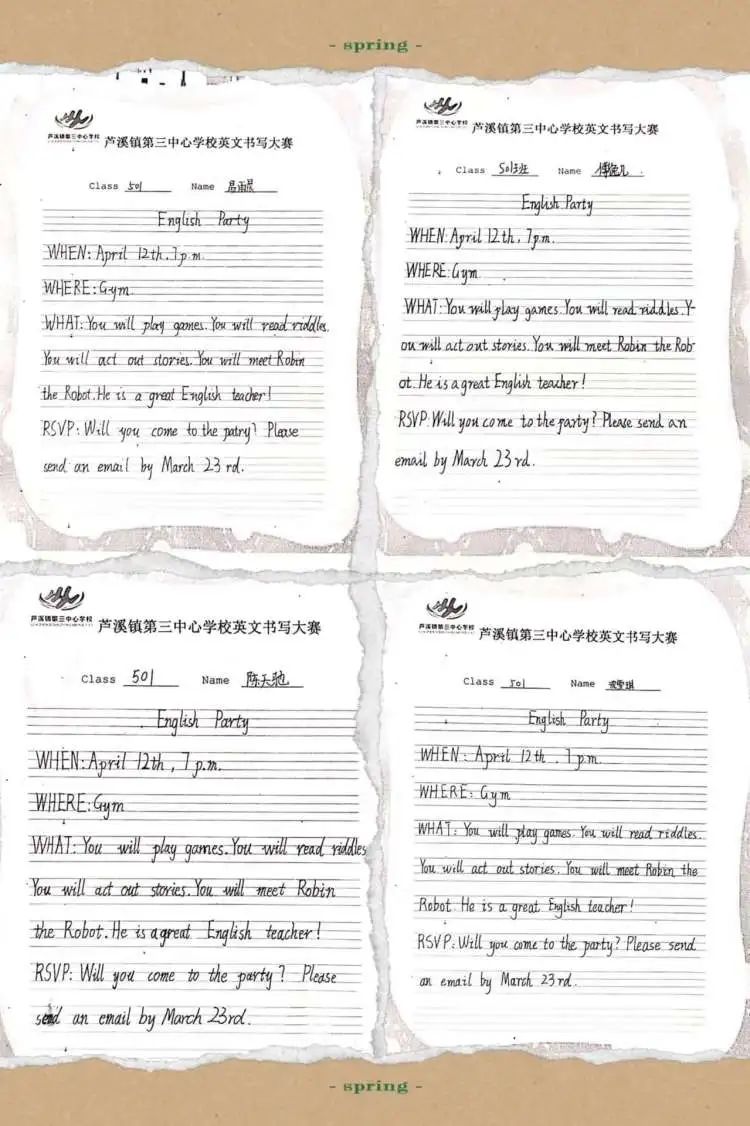 - spring -
芦溪镇第三中心学校
芦溪镇第三中心学校英文书写大赛
Class 501 Name
English Party
WHEN: April 12th, 7 p.m.
WHERE: Gym
WHAT: You will play games. You will read riddles.
You will act out stories. You will meet Robin
the Robot. He is a great English teacher!
RSVP: Will you come to the patry? Please
send an email by March 23 rd.
芦溪镇第三中心学校
芦溪镇第三中心学校英文书写大赛
Class 501班 Name
English Party
WHEN: April 12th, 7p.m.
WHERE: Gym
WHAT: You will play games. You will read riddles. Y-
ou will act out stories. You will meet Robin the Rob-
ot. He is a great English teacher!
RSVP: Will you come to the party? Please send an
email by March 23 rd.
芦溪镇第三中心学校
芦溪镇第三中心学校英文书写大赛
Class 501 Name 陈天驰
English Party
WHEN: April 12th, 7 p.m.
WHERE: Gym
WHAT: You will play games. You will read riddles
You will act out stories. You will meet Robin
the Robot. He is a great English teacher!
RSVP: Will you come to the party? Please
send an email by March 23rd.
芦溪镇第三中心学校
芦溪镇第三中心学校英文书写大赛
Class 501 Name
English Party
WHEN: April 12th, 7 p.m.
WHERE: Gym
WHAT: You will play games. You will read riddles.
You will act out stories. You will meet Robin the
Robot. He is a great English teacher!
RSVP: Will you come to the party? Please send
an email by March 23rd.
- spring -